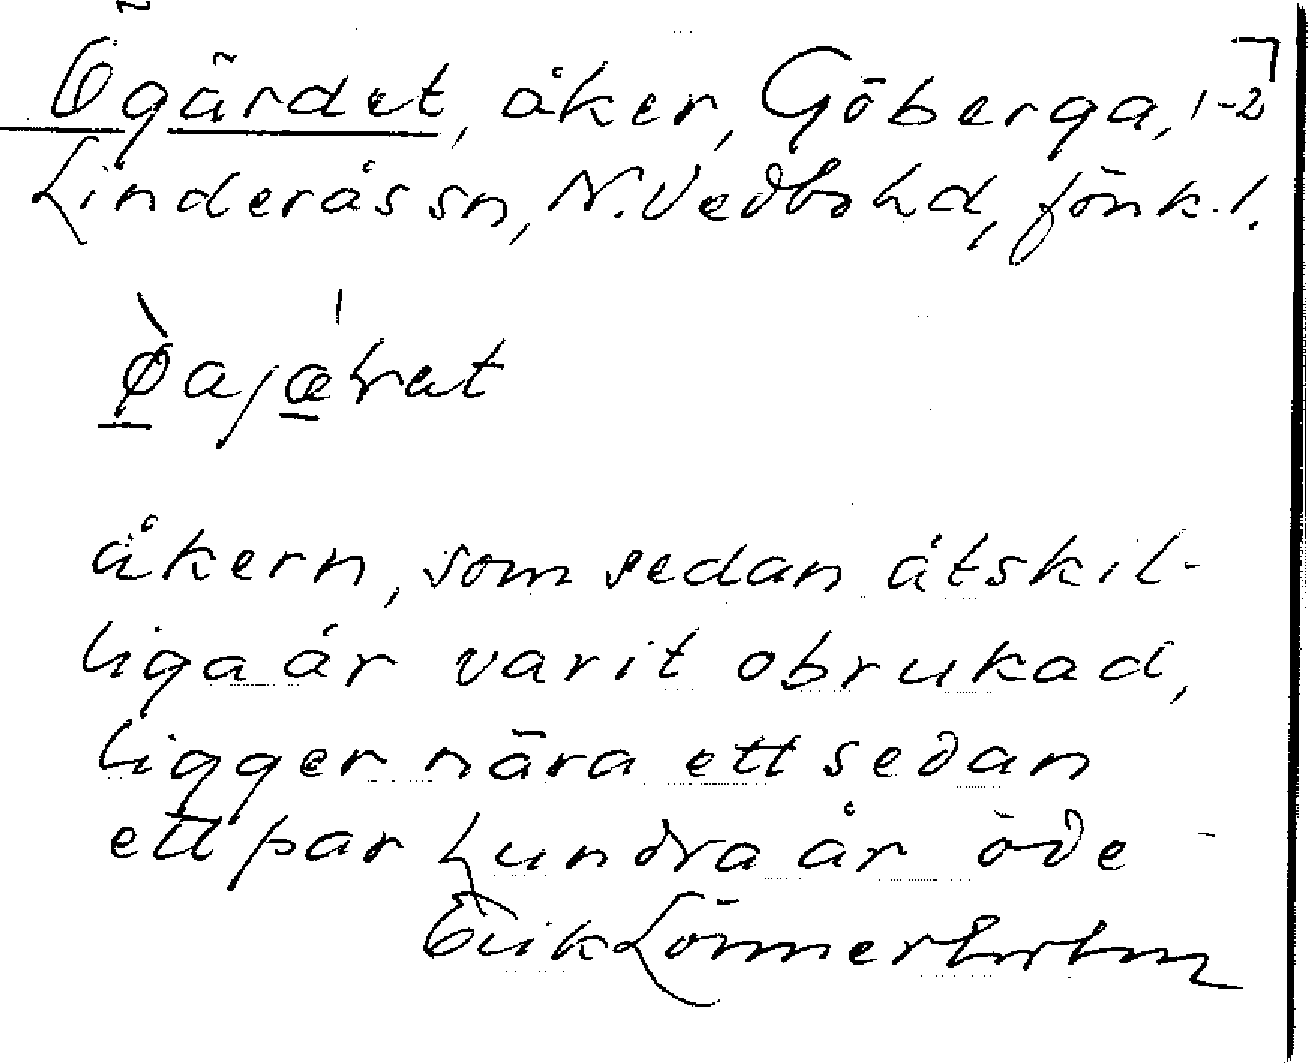 Ögärdet, åker, Göberga, 1-2
Linderås sn, N. Vedbo hd, Jönk. l.
åkern, som sedan åtskil-
liga år varit obrukad,
ligger nära ett sedan
ett par hundra år öde -
Erik Lönnerholm